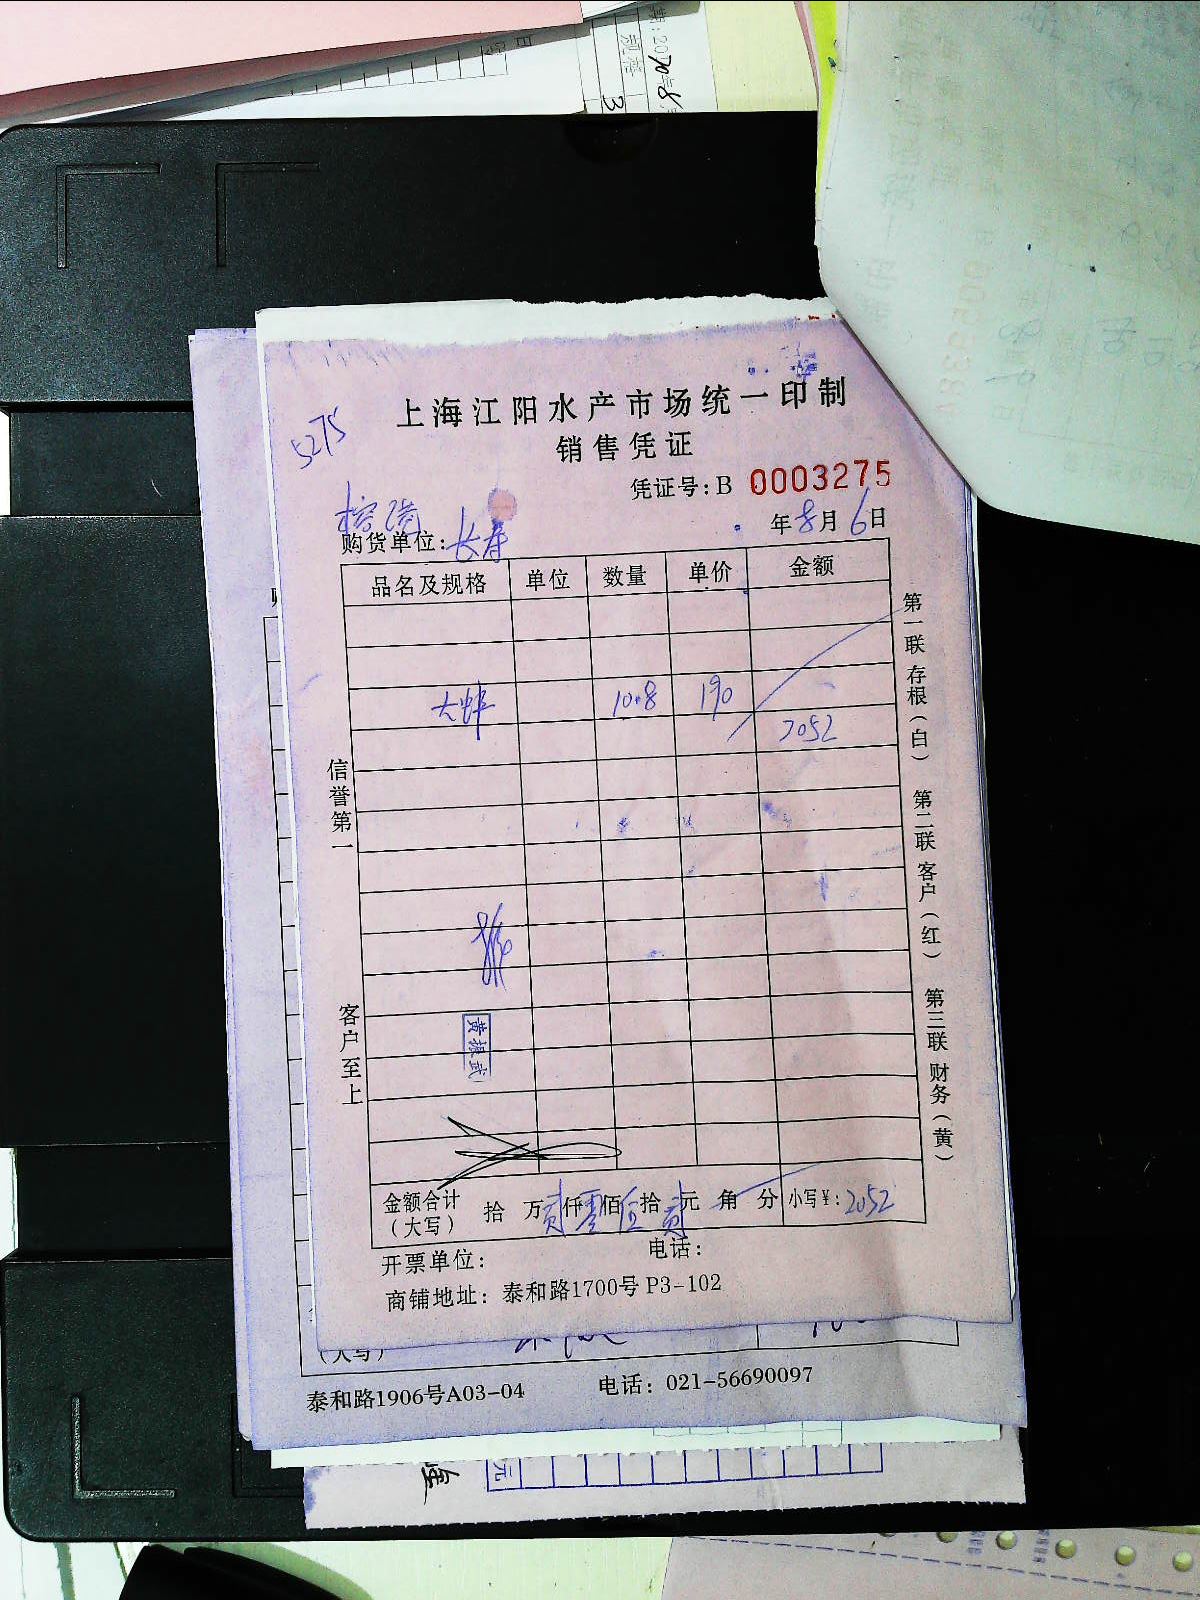 上海江阳水产市场统一印制
销售凭证
5275
凭证号:B 0003275
年8月6日
购货单位:长寿
品名及规格 单位 数量 单价 金额
大虾 10.8 190
2052
信誉第一
客户至上
第一联 存根(白) 第二联 客户(红) 第三联 财务(黄)
黄根武
金额合计(大写) 拾 万贰仟零佰伍拾贰元 角 分 小写¥: 2052
开票单位: 电话:
商铺地址: 泰和路1700号 P3-102
(大写)
泰和路1906号A03-04 电话: 021-56690097
元